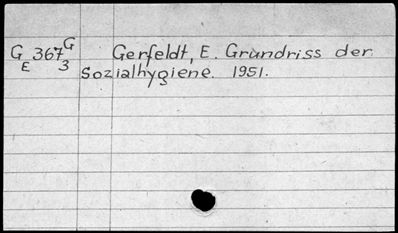 G E 367 G 3 Gerfeldt, E. Grundriss der
Sozialhygiene. 1951.